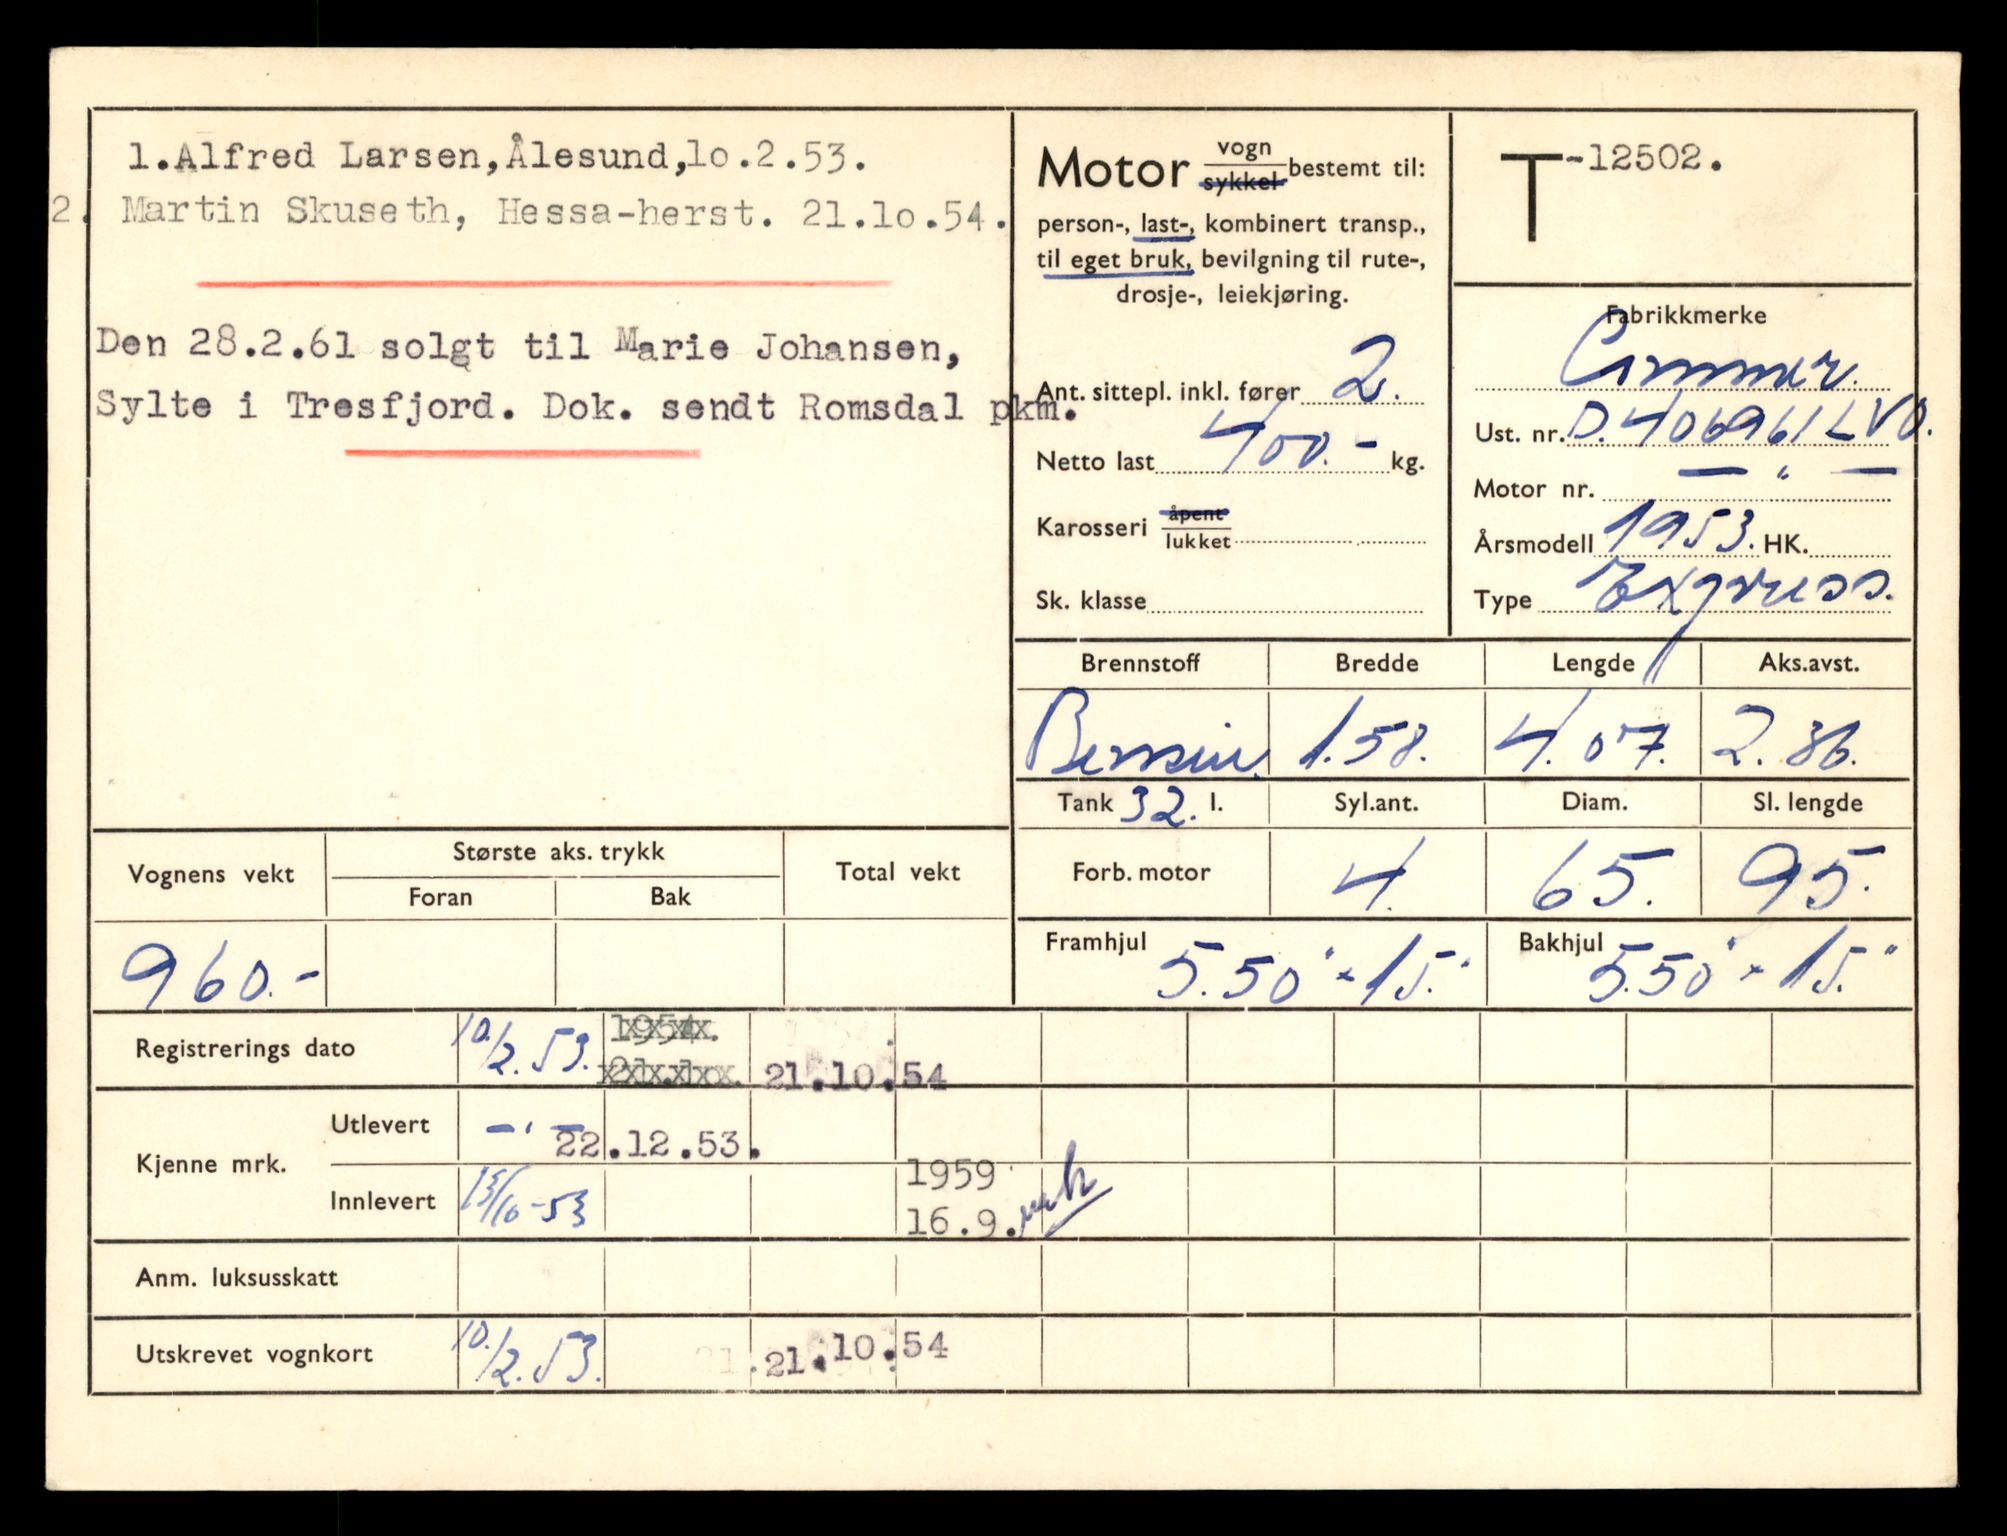 1.Alfred Larsen,Ålesund,lo.2.53.
2. Martin Skuseth, Hessa-herst. 21.lo.54.
Den 28.2.61 solgt til Marie Johansen,
Sylte i Tresfjord. Dok. sendt Romsdal pkm.
Motor vogn sykkel bestemt til:
person-, last-, kombinert transp.,
til eget bruk, bevilgning til rute-,
drosje-, leiekjøring.
Ant. sittepl. inkl. fører 2.
Netto last 400.- kg.
Karosseri åpent lukket
Sk. klasse
T-12502.
Fabrikkmerke
Commer.
Ust. nr. D.406961LVO.
Motor nr. — " —
Årsmodell 1953. HK.
Type Express.
Brennstoff Bredde Lengde Aks.avst.
Bensin. 1.58. 4.07. 2.36.
Tank 32. l. Syl.ant. Diam. Sl. lengde
Forb. motor 4. 65. 95.
Framhjul 5.50" x 15." Bakhjul 5.50" x 15."
Vognens vekt Største aks. trykk Total vekt
Foran Bak
960.-
Registrerings dato 10./2.53. 1954. 21.10.54
Kjenne mrk. Utlevert —"— 22.12.53.
Innlevert 13/10-53 1959 16.9.
Anm. luksusskatt
Utskrevet vognkort 10./2.53. 21.10.54